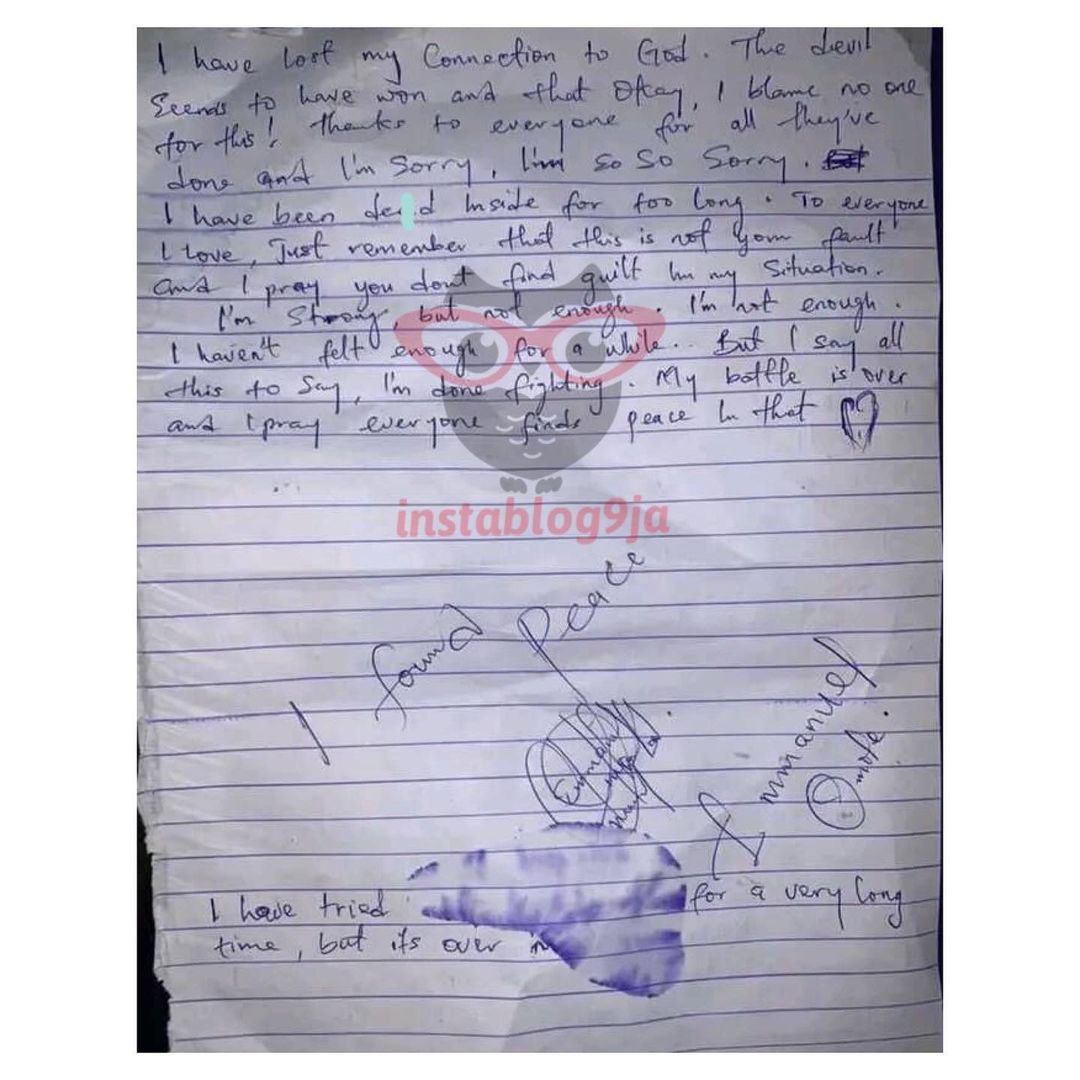 I have lost my Connection to God. The devil
Seems to have won and that Okay, I blame no one
for this! thanks to everyone for all they've
done and I'm Sorry, I'm so So Sorry.
I have been dead Inside for too Long. To everyone
I Love, Just remember that this is not your fault
and I pray you dont find guilt In my Situation.
I'm Strong, but not enough. I'm not enough.
I haven't felt enough for a while.. But I say all
this to Say, I'm done fighting. My battle is over
and I pray everyone finds peace In that
instablog9ja
I found Peace
Emmanuel
Omote.
I have tried for a very long
time, but its over